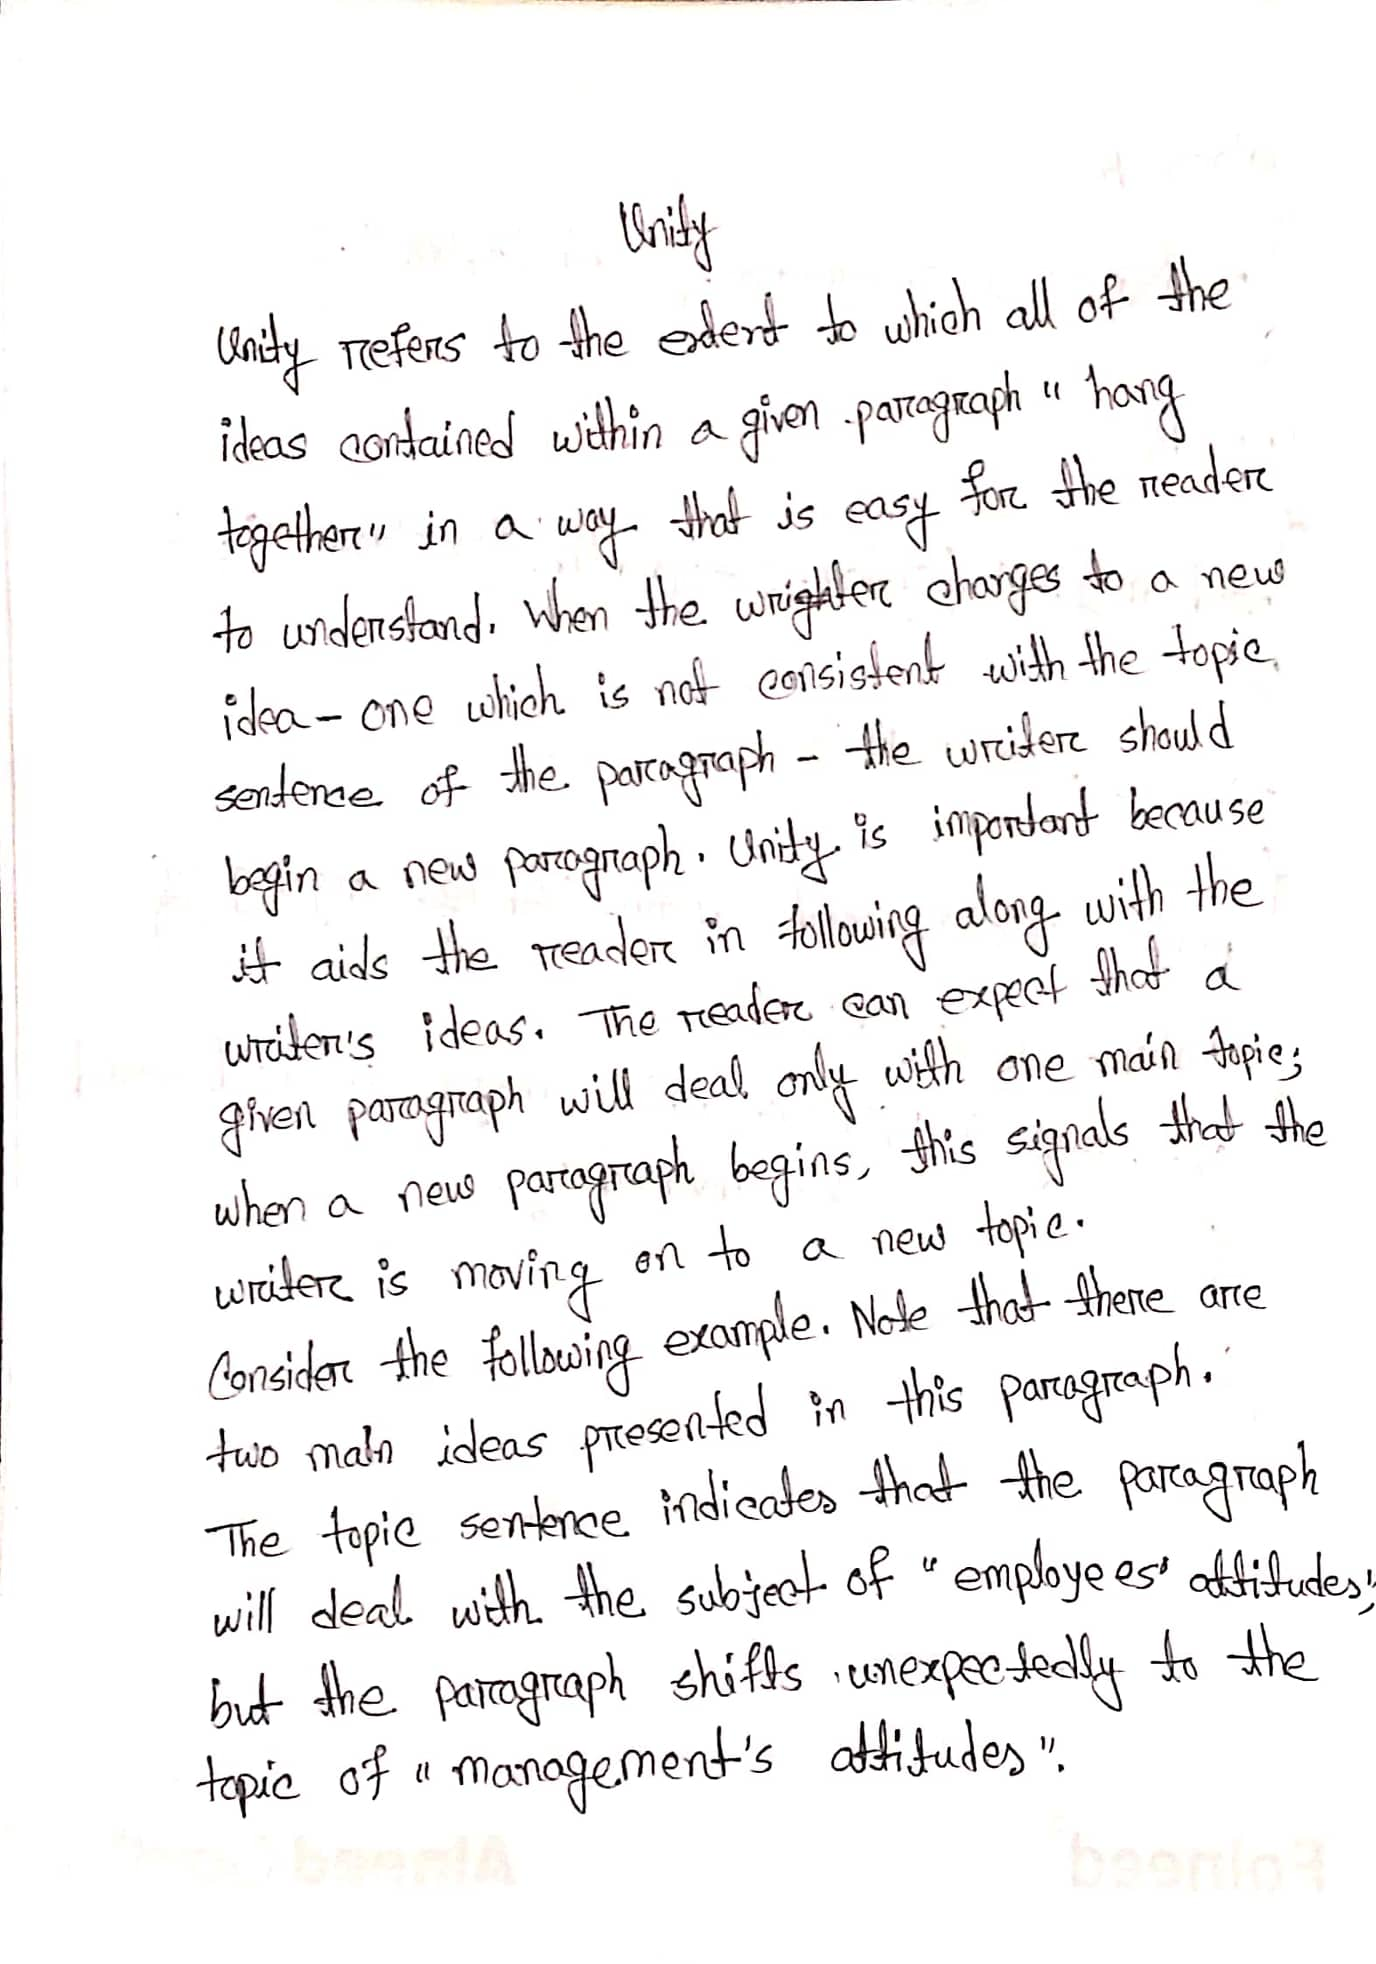 Unity
Unity refers to the extent to which all of the
ideas contained within a given paragraph "hang
together" in a way that is easy for the reader
to understand. When the wrighter changes to a new
idea - one which is not consistent with the topic
sentence of the paragraph - the writer should
begin a new paragraph. Unity is important because
it aids the reader in following along with the
writer's ideas. The reader can expect that a
given paragraph will deal only with one main topic;
when a new paragraph begins, this signals that the
writer is moving on to a new topic.
Consider the following example. Note that there are
two main ideas presented in this paragraph.
The topic sentence indicates that the paragraph
will deal with the subject of "employees' attitudes",
but the paragraph shifts unexpectedly to the
topic of "management's attitudes".